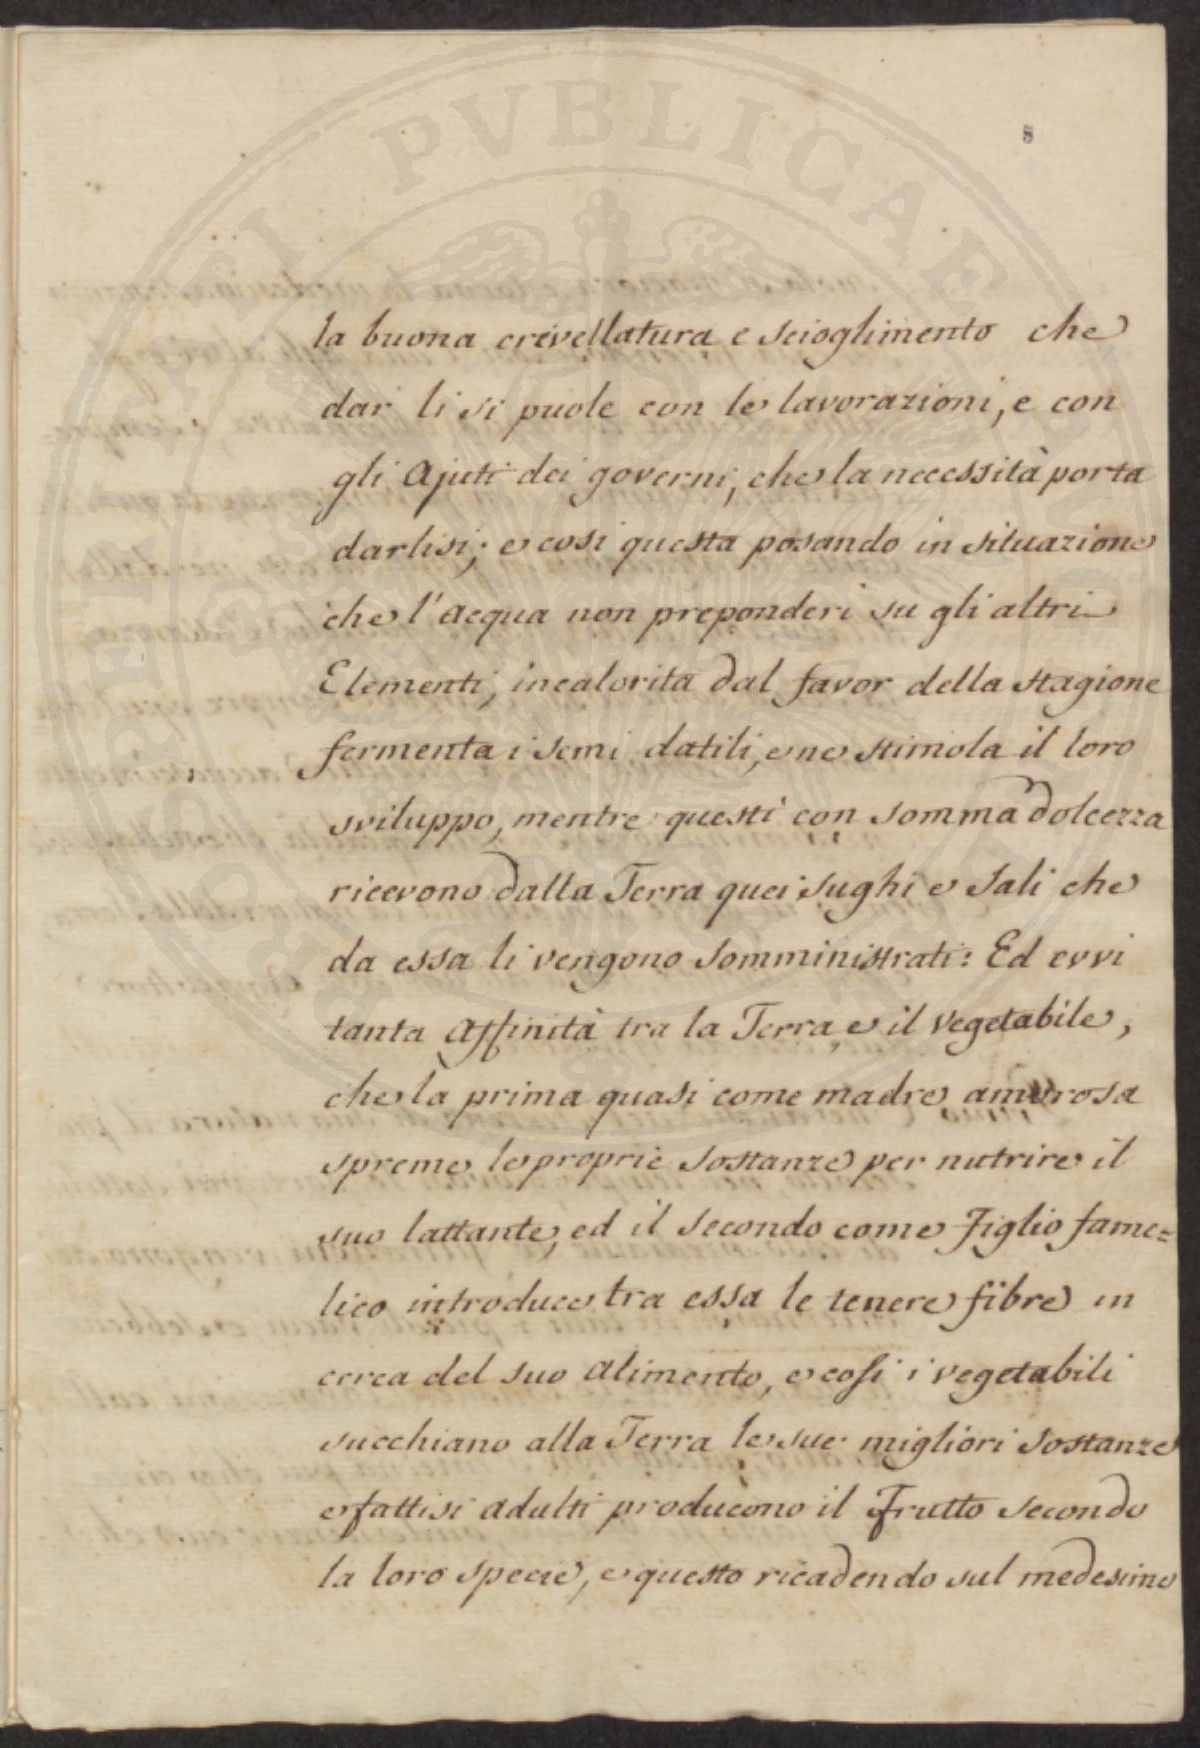 PROSPERITATI PVBLICAE
8
la buona crivellatura e scioglimento che
dar li si puole con le lavorazioni, e con
gli Ajuti dei governi, che la necessità porta
darlisi; e cosi questa posando in situazione
che l'acqua non preponderi su gli altri
Elementi, incalorita dal favor della stagione
fermenta i semi datili, e ne stimola il loro
sviluppo, mentre questi con somma dolcezza
ricevono dalla Terra quei sughi e Sali che
da essa li vengono somministrati: Ed evvi
tanta Affinità tra la Terra, e il Vegetabile,
che la prima quasi come madre amorosa
spreme le proprie Sostanze per nutrire il
suo lattante, ed il Secondo come Figlio fame=
lico introduce tra essa le tenere fibre in
cerca del suo alimento, e cosi i vegetabili
succhiano alla Terra le sue migliori Sostanze
e fattisi adulti producono il Frutto secondo
la loro specie, e questo ricadendo sul medesimo